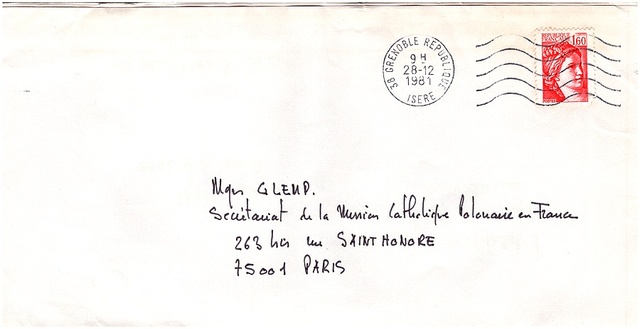 38 GRENOBLE REPUBLIQUE
9H
28-12
1981
ISERE
REPUBLIQUE
FRANCAISE
1.60
Mgr GLEMP.
Secrétariat de la Mission Catholique Polonaise en France
263 bis rue SAINT HONORE
75001 PARIS